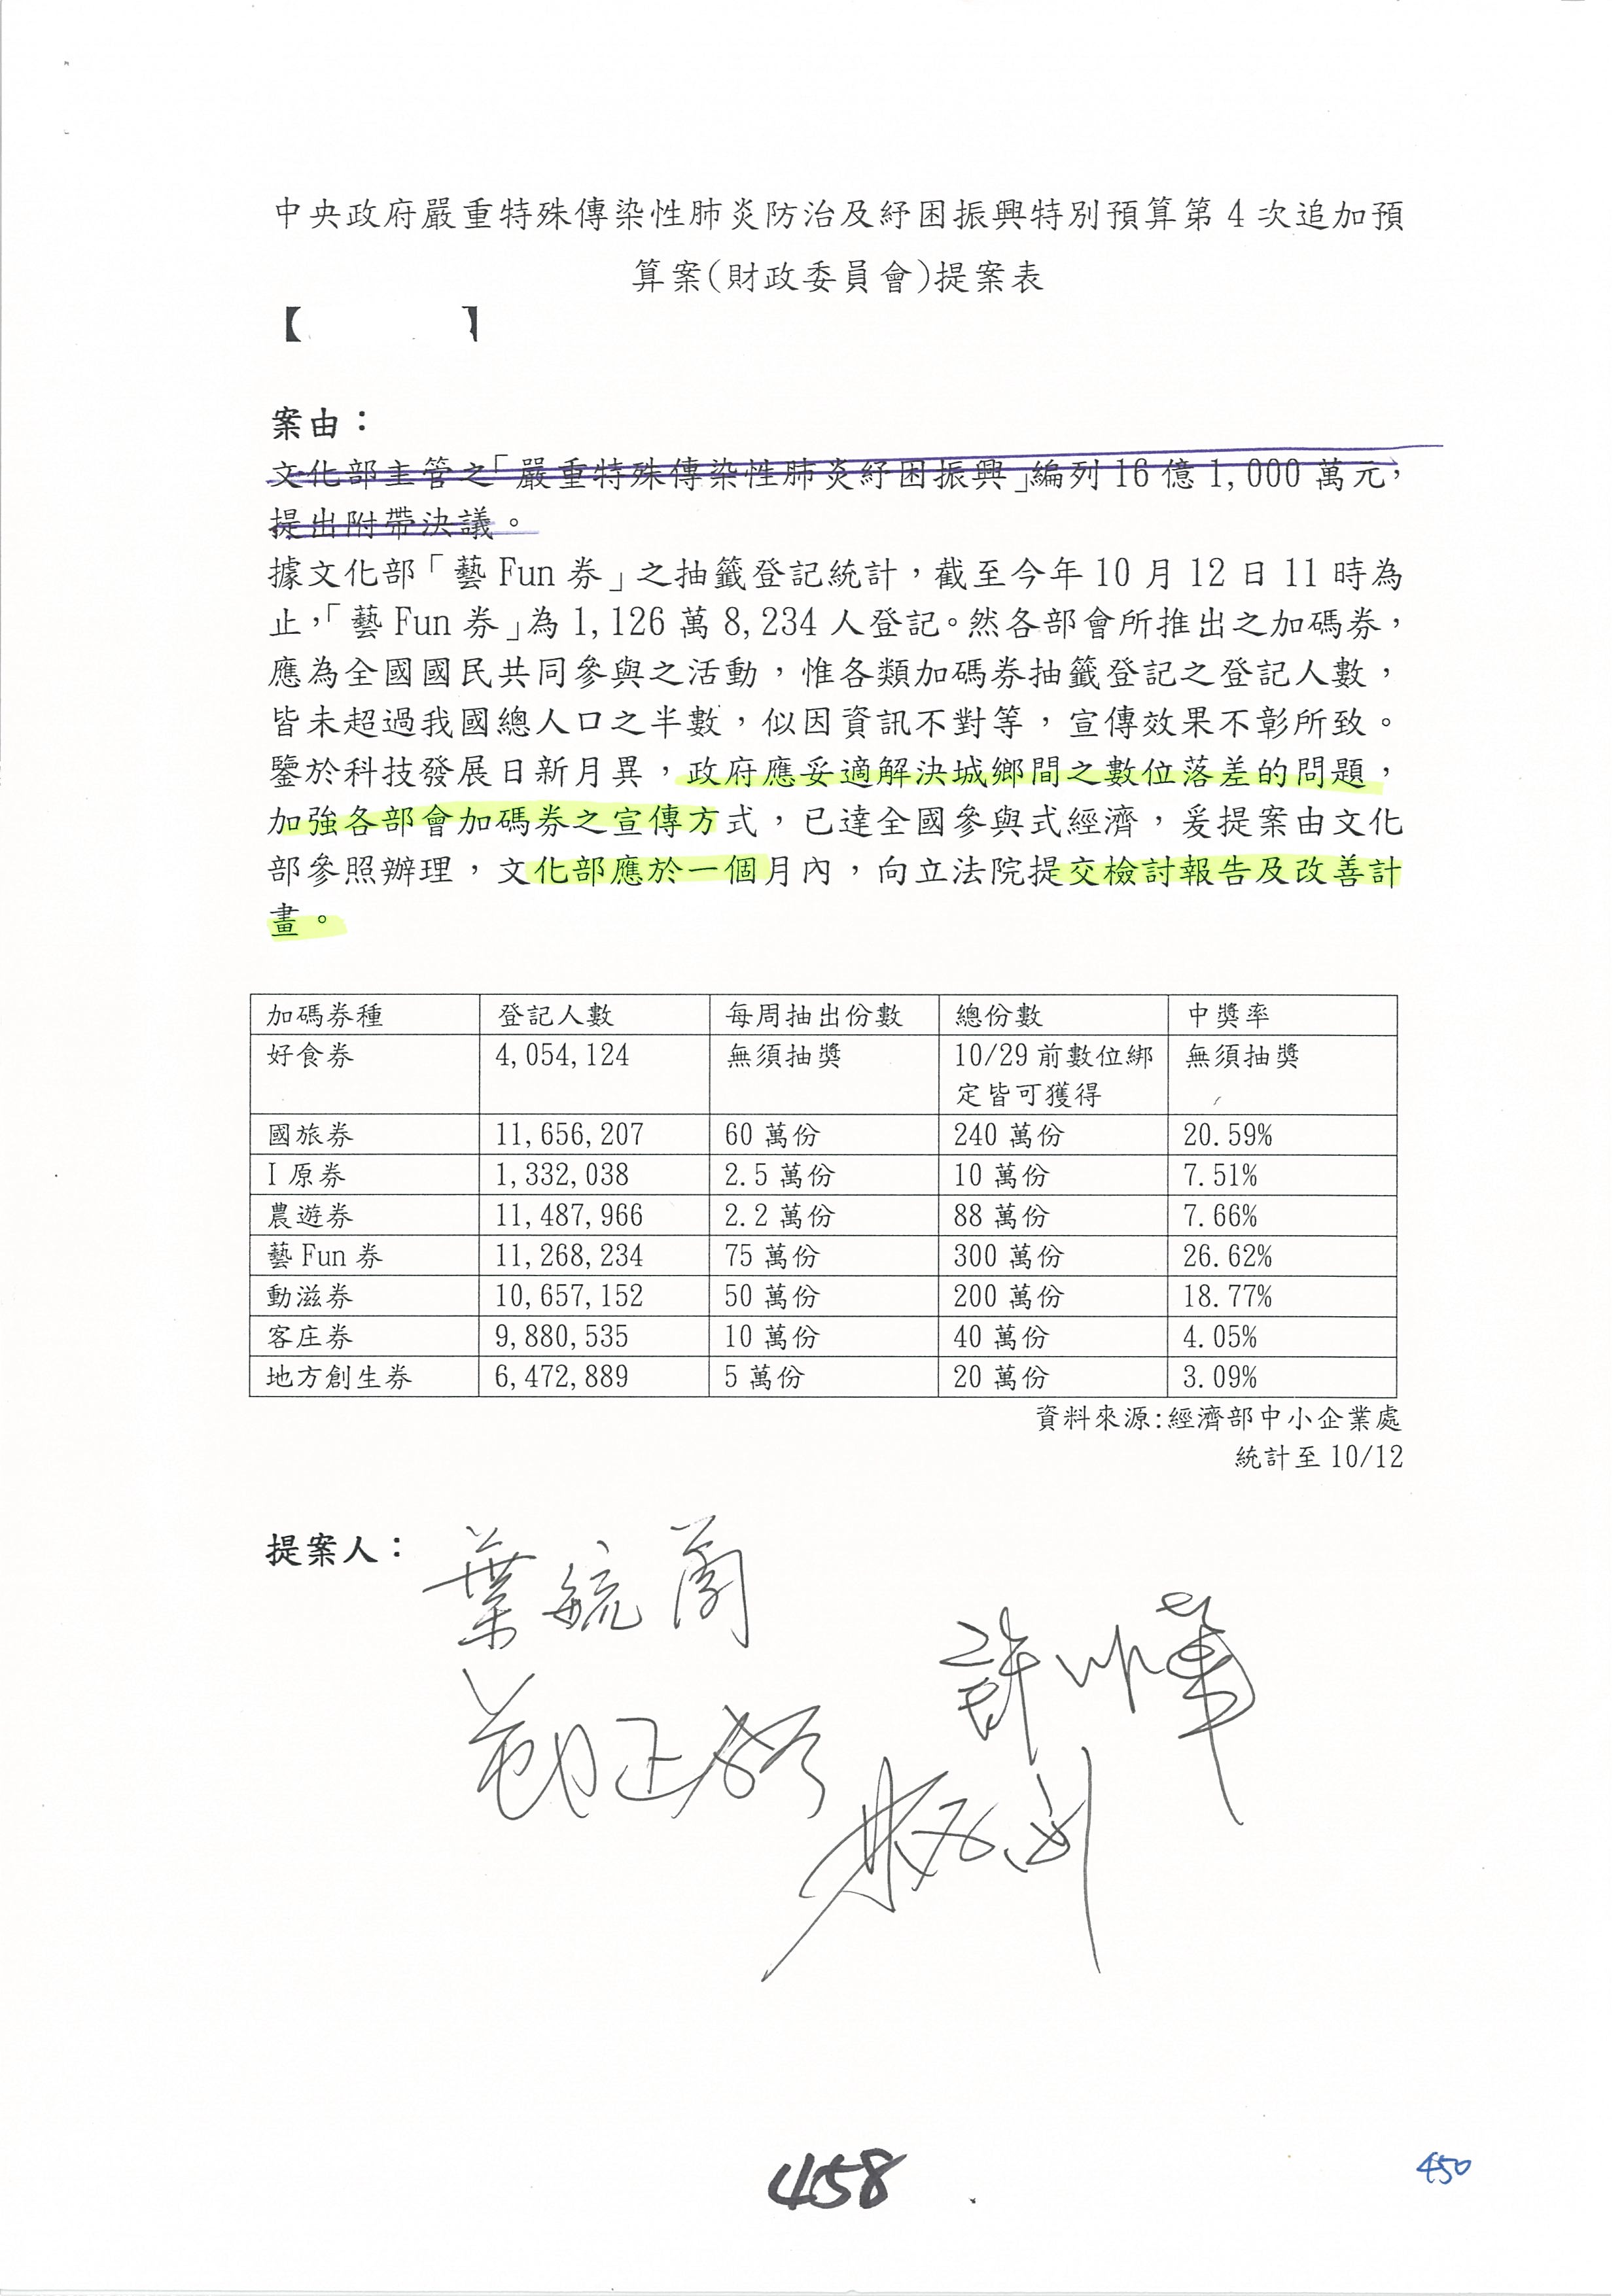 中央政府嚴重特殊傳染性肺炎防治及紓困振興特別預算第 4 次追加預
算案(財政委員會)提案表
【 】
案由：
文化部主管之「嚴重特殊傳染性肺炎紓困振興」編列 16 億 1,000 萬元，
提出附帶決議。
據文化部「藝 Fun 券」之抽籤登記統計，截至今年 10 月 12 日 11 時為
止，「藝 Fun 券」為 1,126 萬 8,234 人登記。然各部會所推出之加碼券，
應為全國國民共同參與之活動，惟各類加碼券抽籤登記之登記人數，
皆未超過我國總人口之半數，似因資訊不對等，宣傳效果不彰所致。
鑒於科技發展日新月異，政府應妥適解決城鄉間之數位落差的問題，
加強各部會加碼券之宣傳方式，已達全國參與式經濟，爰提案由文化
部參照辦理，文化部應於一個月內，向立法院提交檢討報告及改善計
畫。
加碼券種 登記人數 每周抽出份數 總份數 中獎率
好食券 4,054,124 無須抽獎 10/29 前數位綁 無須抽獎
定皆可獲得
國旅券 11,656,207 60 萬份 240 萬份 20.59%
I 原券 1,332,038 2.5 萬份 10 萬份 7.51%
農遊券 11,487,966 2.2 萬份 88 萬份 7.66%
藝 Fun 券 11,268,234 75 萬份 300 萬份 26.62%
動滋券 10,657,152 50 萬份 200 萬份 18.77%
客庄券 9,880,535 10 萬份 40 萬份 4.05%
地方創生券 6,472,889 5 萬份 20 萬份 3.09%
資料來源:經濟部中小企業處
統計至 10/12
提案人：
葉毓蘭
鄭正鈐
458
450